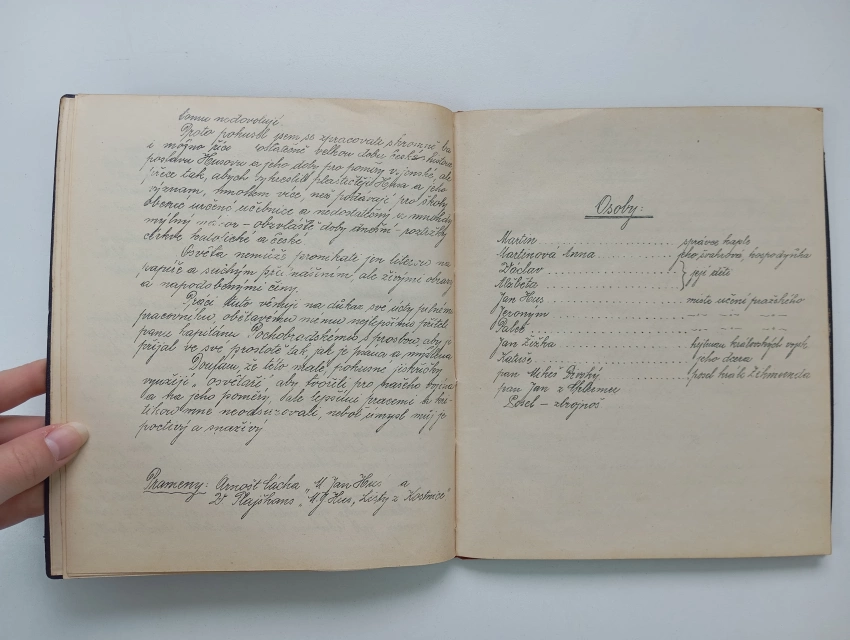 tomu nedovolují.
Proto pokusil jsem se zpracovati skromně
i možno říci velkou dobu české
postavu Husovu a jeho doby pro poměry vojenské, ale
přece tak, abych vykreslil plastičtěji Husa a jeho
význam, mnohem více, než podávají pro školy
obecné určené učebnice a nedostatečný a mnohdy
mylný názor – obzvláště doby dnešní – rozluky
církve katolické a české.
Osvěta nemůže pronikati jen literou na
papíře a suchým přednášením, ale živými obrazy
a napodobenými činy.
Práci tuto věnuji na důkaz své úcty
pracovníku, obětavému mému nejlepšímu příteli
panu kapitánu Pochobradskému s prosbou, aby ji
přijal ve své prostotě tak, jak je psána a myšlena
Doufám, že této malé pokusné jiskřičky
využijí "osvětáři", aby tvořili pro našeho vojína
a na jeho poměry, dále lepšími pracemi a
mne neodsuzovali, neboť úmysl můj je
poctivý a snaživý
Prameny: Arnošt Cácha "M Jan Hus" a
V Flajšhans "M J Hus, Listy z Kostnice"
Osoby:
Martin .......... správce kaple
Martinová Anna .......... jeho švakrová, hospodyňka
Václav .......... } její děti
Alžběta ..........
Jan Hus .......... mistr učení pražského
Jeroným .......... –"– –"– –"–
Páleč .......... –"– –"– –"–
Jan Žižka .......... hejtman královských vojsk
Katuše .......... jeho dcera
pan Mikeš Divoký .......... posel krále Zikmunda
pan Jan z Chlumu
Posel – zbrojnoš